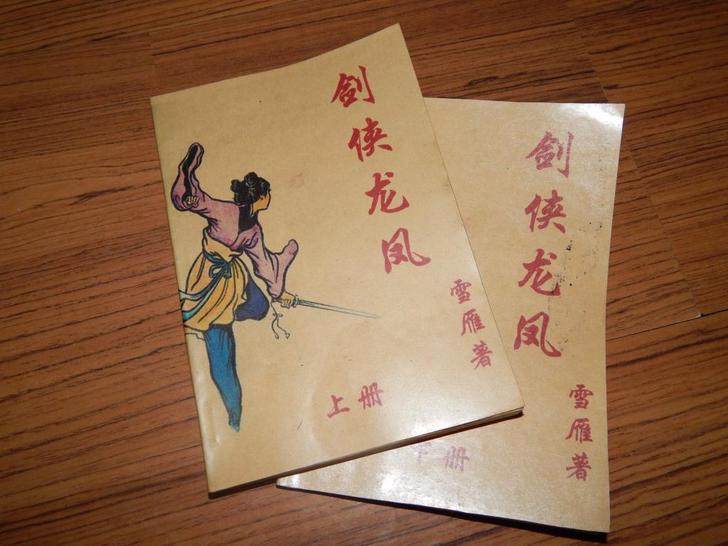 剑侠龙凤
雪雁著
上册
剑侠龙凤
雪雁著
下册